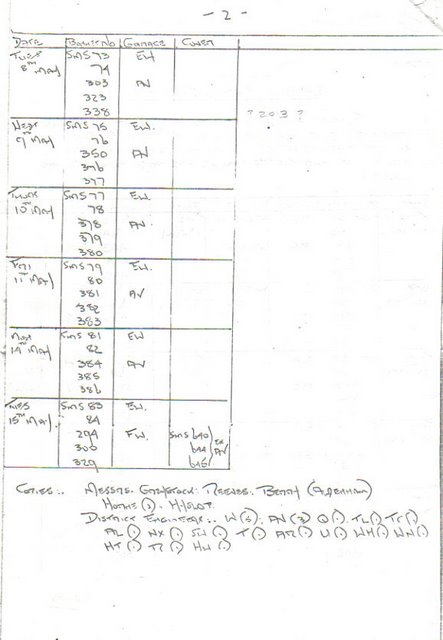 - 2 -
DATE BONNET NO GARAGE COVER
TUES SMS 73 EW
8TH MAY 74
303 AV
323
338 ? 203 ?
WEDS SMS 75 EW.
9TH MAY 76
350 AV
376
377
THURS SMS 77 EW.
10TH MAY 78
378 AV.
379
380
FRI SMS 79 EW.
11TH MAY 80
381 AV
382
383
MON SMS 81 EW
14TH MAY 82
384 AV
385
386
TUES SMS 83 EW.
15TH MAY 84
294 FW. SMS 640
300 644 EX AV
329 645
COPIES :- MESSRS. REEVES. BERRY (ALDENHAM)
HYSLOP.
DISTRICT ENGINEERS :- W(3). AV(3) Q(1). TL(1) TC(1)
AL(1) NX(1) SW(1) T(1) AR(1) U(1) WH(1) WN(1)
HT(1) TR(1) HW(1)